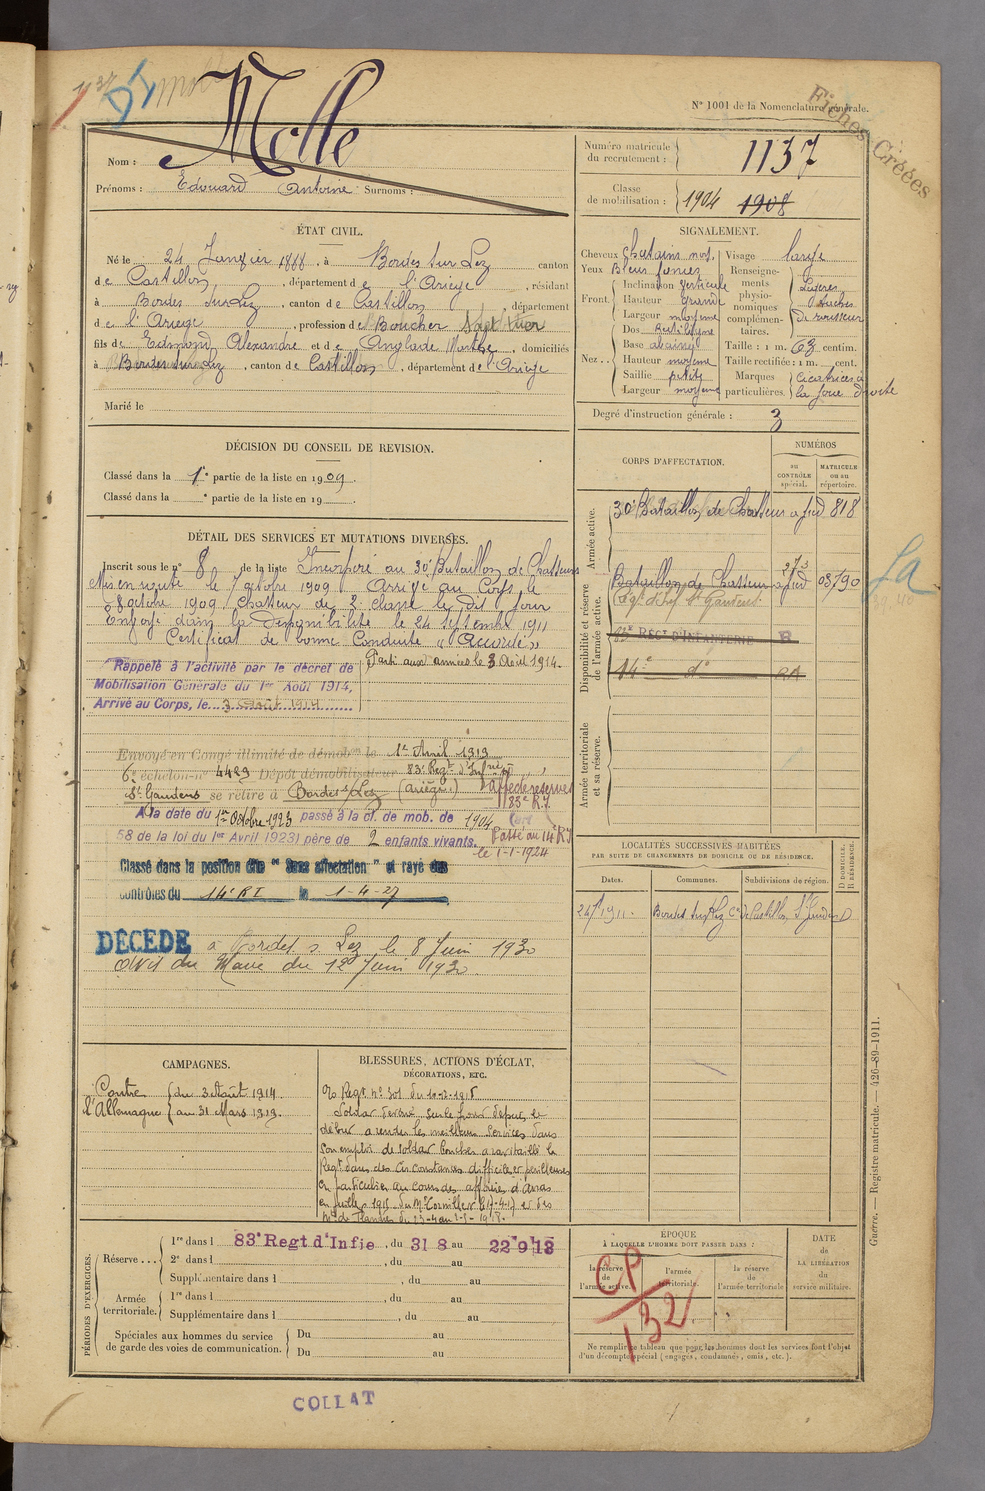 N° 1001 de la Nomenclature générale.
Fiches Créées
Molle
Nom :
Prénoms : Edouard Antoine Surnoms :
Numéro matricule du recrutement : 1137
Classe de mobilisation : 1904 1908
ÉTAT CIVIL.
Né le 24 Janvier 1888, à Bordes sur Lez canton
de Castillon, département de l'Ariège, résidant
à Bordes sur Lez, canton de Castillon, département
de l'Ariège, profession de Boucher
fils de Edmond Alexandre et de Anglade Marthe, domiciliés
à Bordes sur Lez, canton de Castillon, département de l'Ariège
Marié le
SIGNALEMENT.
Cheveux chatains moy.
Yeux Bleus foncés
Front. Inclinaison verticale
Hauteur grande
Largeur moyenne
Nez. Dos rectiligne
Base abaissé
Hauteur moyenne
Saillie petite
Largeur moyenne
Visage large
Renseignements physionomiques complémentaires. Légères taches de rousseur
Taille : 1 m. 63 centim.
Taille rectifiée : 1 m. cent.
Marques particulières. Cicatrices à la joue droite
Degré d'instruction générale : 3
DÉCISION DU CONSEIL DE REVISION.
Classé dans la 1e partie de la liste en 1909
Classé dans la e partie de la liste en 19
DÉTAIL DES SERVICES ET MUTATIONS DIVERSES.
Inscrit sous le n° 8 de la liste Incorporé au 30e Bataillon de Chasseurs
Mis en route le 7 octobre 1909 Arrivé au Corps le
8 octobre 1909. Chasseur de 2e classe le dit jour
Envoyé dans la Disponibilité le 24 septembre 1911
Certificat de bonne Conduite « Accordé »
Rappelé à l'activité par le décret de
Mobilisation Générale du 1er Août 1914,
Arrivé au Corps, le 3 Août 1914
Parti aux armées le 3 Août 1914.
Envoyé en Congé illimité de démobon le 1er Avril 1919
6e échelon-n° 4429 Dépôt démobilisateur 83e Regt d'Infrie
St Gaudens se retire à Bordes s/Lez (Ariège)
Affecté réserve
83e R.I.
A la date du 1er Octobre 1923 passé à la cl. de mob. de 1904 (art
58 de la loi du 1er Avril 1923) père de 2 enfants vivants.
Passé au 14e R.I
le 1-1-1924
Classé dans la position dite "Sans affectation" et rayé des
contrôles du 14e RI le 1-4-27
DÉCÉDÉ à Bordes s Lez le 8 Juin 1930
Avis du Maire du 12 Juin 1930.
CORPS D'AFFECTATION.
NUMÉROS
au CONTRÔLE spécial.
MATRICULE ou au répertoire.
Armée active.
30e Bataillon de Chasseurs à pied 818
Disponibilité et réserve de l'armée active.
Bataillon de Chasseurs à pied 03790
83e REGT D'INFANTERIE R
14e do RA
Armée territoriale et sa réserve.
LOCALITÉS SUCCESSIVES HABITÉES
PAR SUITE DE CHANGEMENTS DE DOMICILE OU DE RÉSIDENCE.
Dates.
Communes.
Subdivisions de région.
D DOMICILE.
R RÉSIDENCE.
Bordes sur Lez Con de Castillon St Gaudens D
CAMPAGNES.
Contre l'Allemagne
du 3 Août 1914
au 31 Mars 1919.
BLESSURES, ACTIONS D'ÉCLAT,
DÉCORATIONS, ETC.
Soldat dévoué sur le front depuis le
début a rendu les meilleurs services dans
son emploi de soldat boucher a ravitaillé le
Régt dans des circonstances difficiles et périlleuses
en particulier au cours des affaires d'Arras
PÉRIODES D'EXERCICES.
Réserve... 1re dans l 83e Regt d'Infie, du 31 8 au 22 9 13
2e dans l , du au
Supplémentaire dans l , du au
Armée territoriale. 1re dans l , du au
Supplémentaire dans l , du au
Spéciales aux hommes du service de garde des voies de communication. Du au
Du au
ÉPOQUE
À LAQUELLE L'HOMME DOIT PASSER DANS :
la réserve de l'armée active.
l'armée territoriale.
la réserve de l'armée territoriale.
DATE de LA LIBÉRATION du service militaire.
CP
132
Ne remplir ce tableau que pour les hommes dont les services font l'objet
d'un décompte spécial (engagés, condamnés, omis, etc.).
Guerre. — Registre matricule. — 426-89-1911.
COLLAT